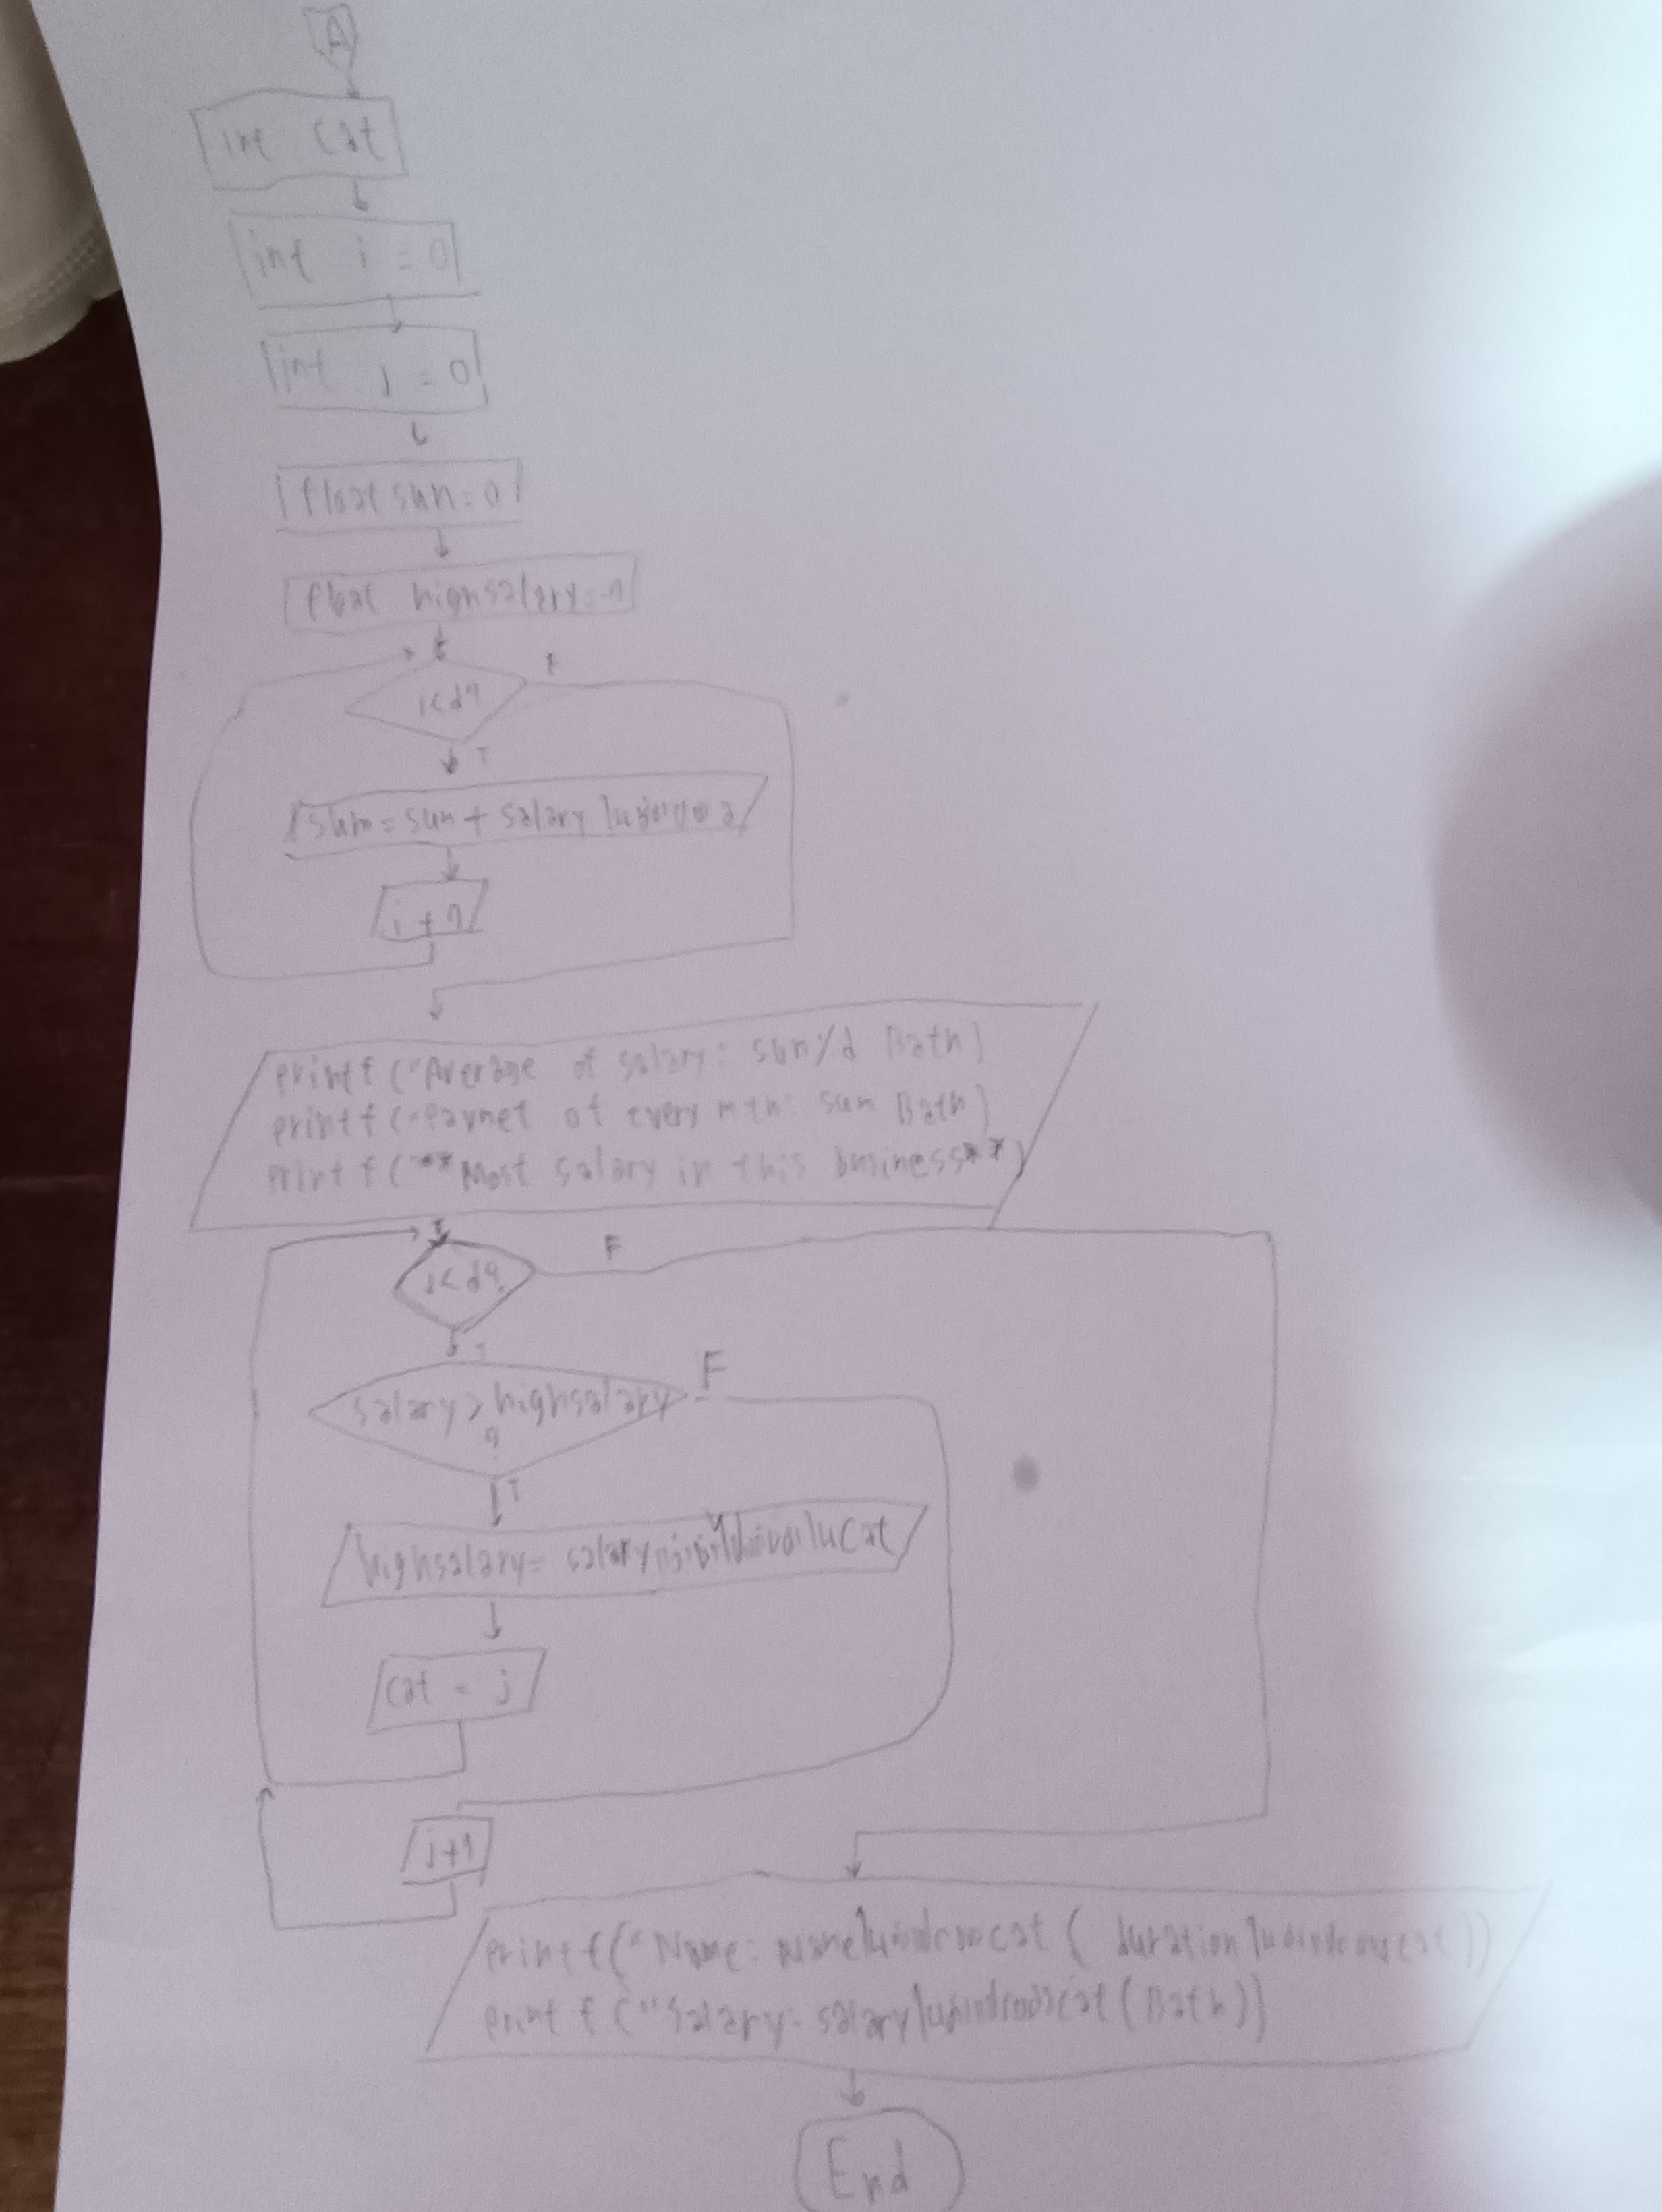 A
int cat
int i = 0
int j = 0
float sum = 0
float highsalary =
i < d?
F
T
sum = sum + salary
i + 1
printf ("Average of salary: sum/d Bath)
printf ("Paymet of every mth: sum Bath)
printf ("**Most salary in this business**)
j < d?
F
T
salary > highsalary
?
F
T
highsalary = salary cat
cat = j
j + 1
printf ("Name: cat ( duration cat ))
printf ("Salary: salary cat (Bath))
End